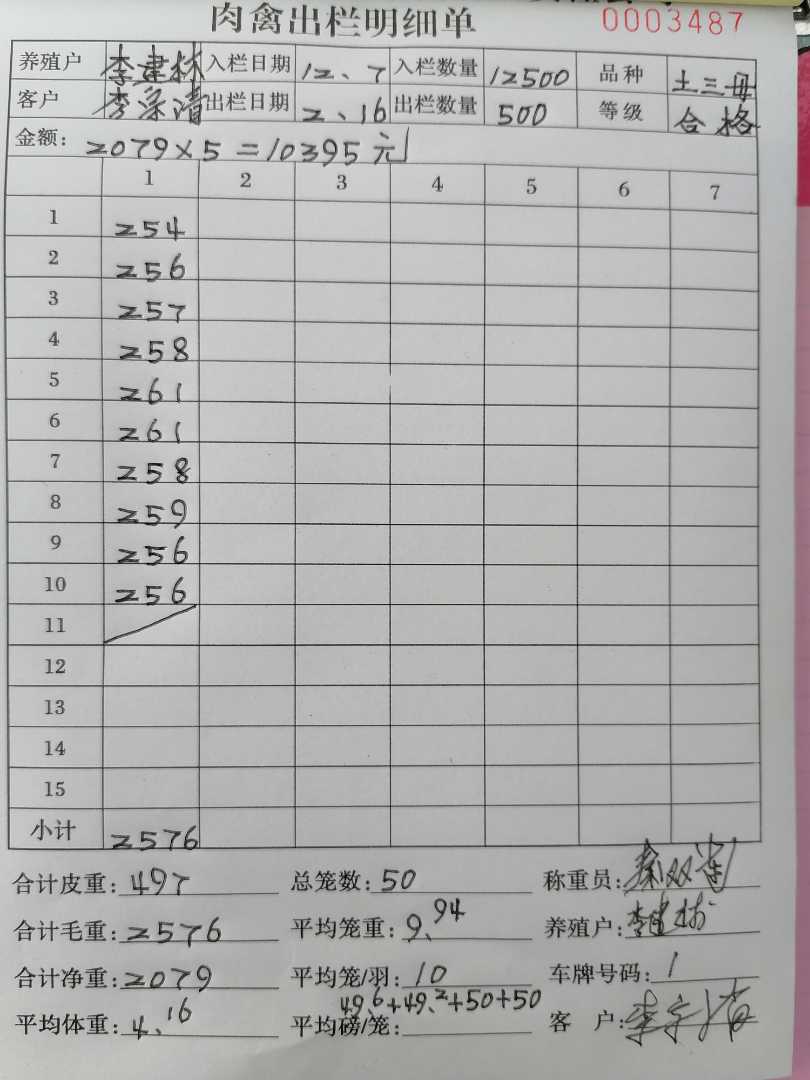 肉禽出栏明细单 0003487
养殖户 李建林 入栏日期 12、7 入栏数量 12500 品种 土三母
客户 李宗清 出栏日期 2、16 出栏数量 500 等级 合格
金额: 2079×5=10395元
1 2 3 4 5 6 7
1 254
2 256
3 257
4 258
5 261
6 261
7 258
8 259
9 256
10 256
11
12
13
14
15
小计 2576
合计皮重: 497 总笼数: 50 称重员:
合计毛重: 2576 平均笼重: 9、94 养殖户: 李建林
合计净重: 2079 平均笼/羽: 10 车牌号码: /
平均体重: 4、16 平均磅/笼: 49、6+49、2+50+50 客 户: 李宗清